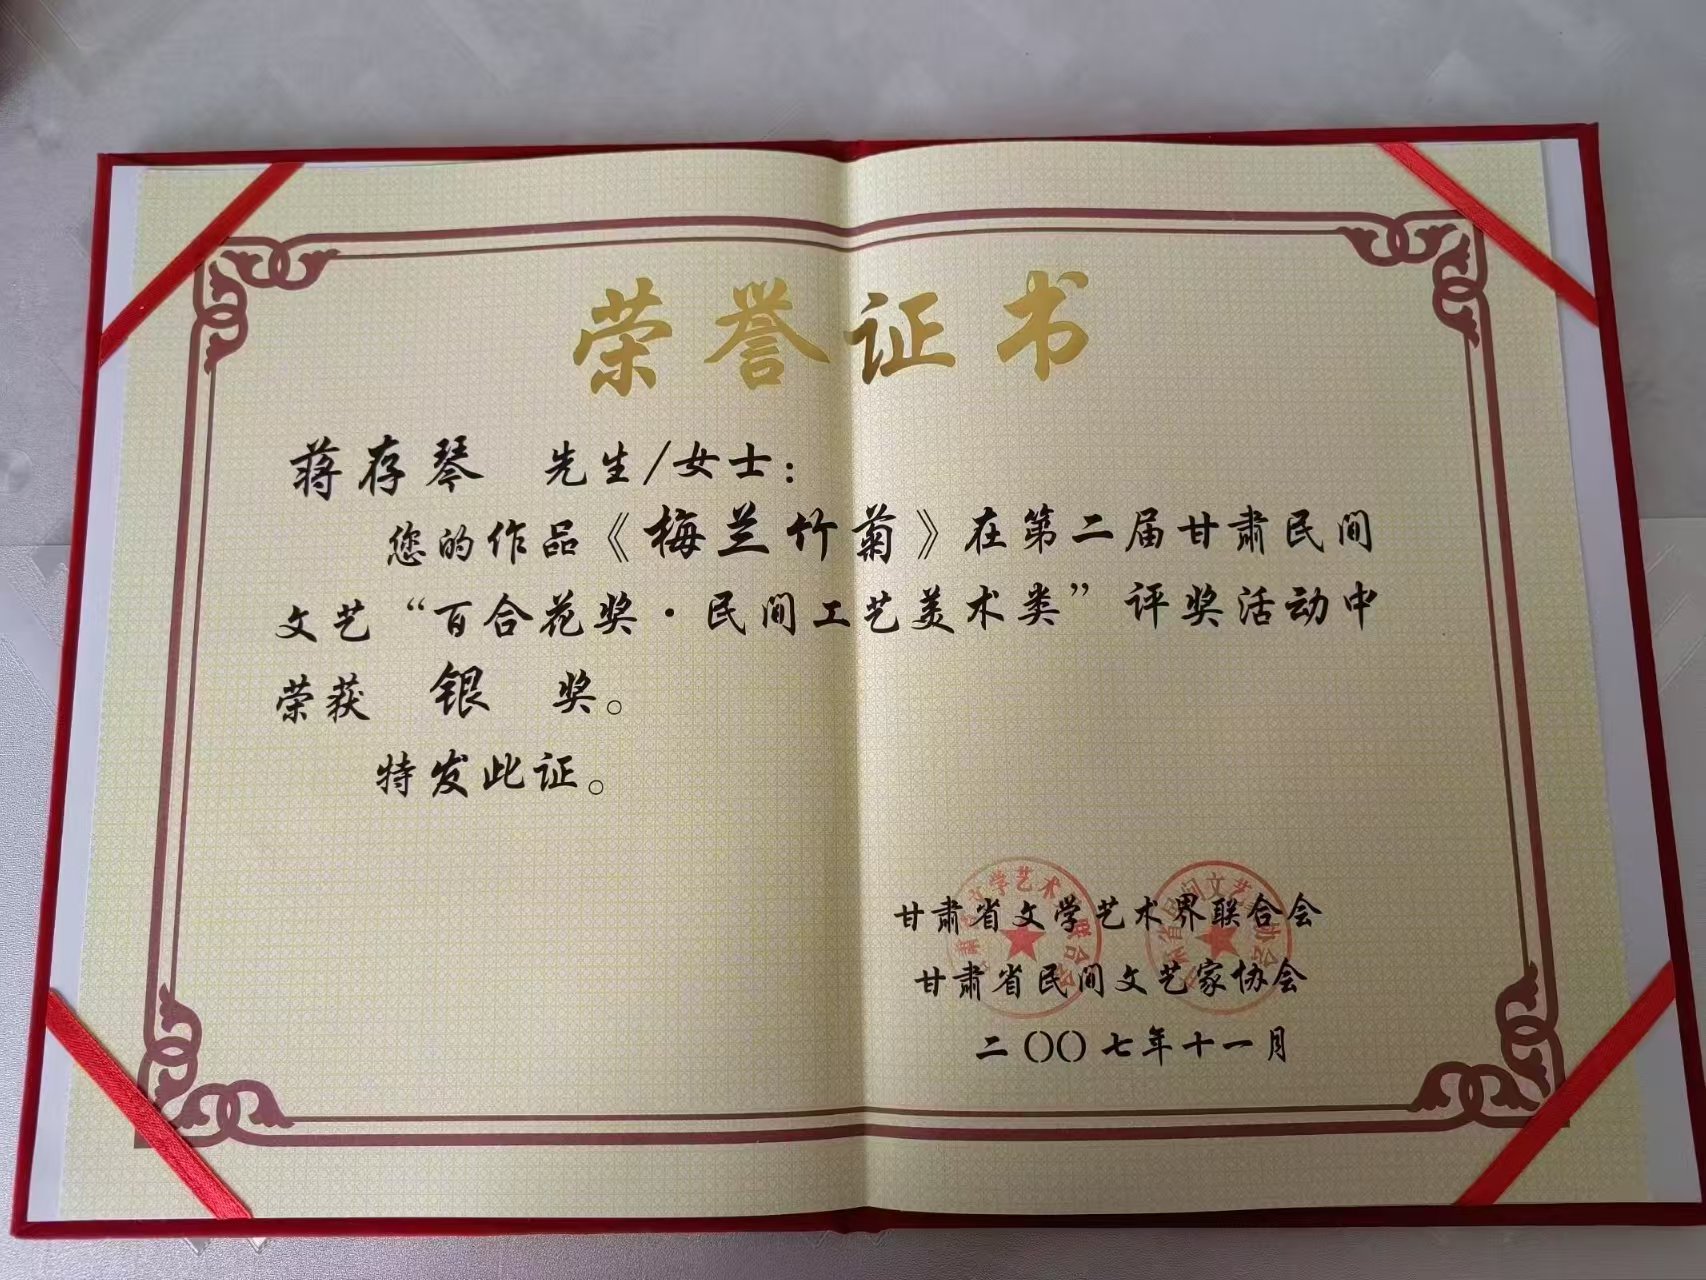 荣誉证书
蒋存琴 先生/女士：
您的作品《梅兰竹菊》在第二届甘肃民间
文艺“百合花奖·民间工艺美术类”评奖活动中
荣获 银 奖。
特发此证。
甘肃省文学艺术界联合会
甘肃省民间文艺家协会
二〇〇七年十一月